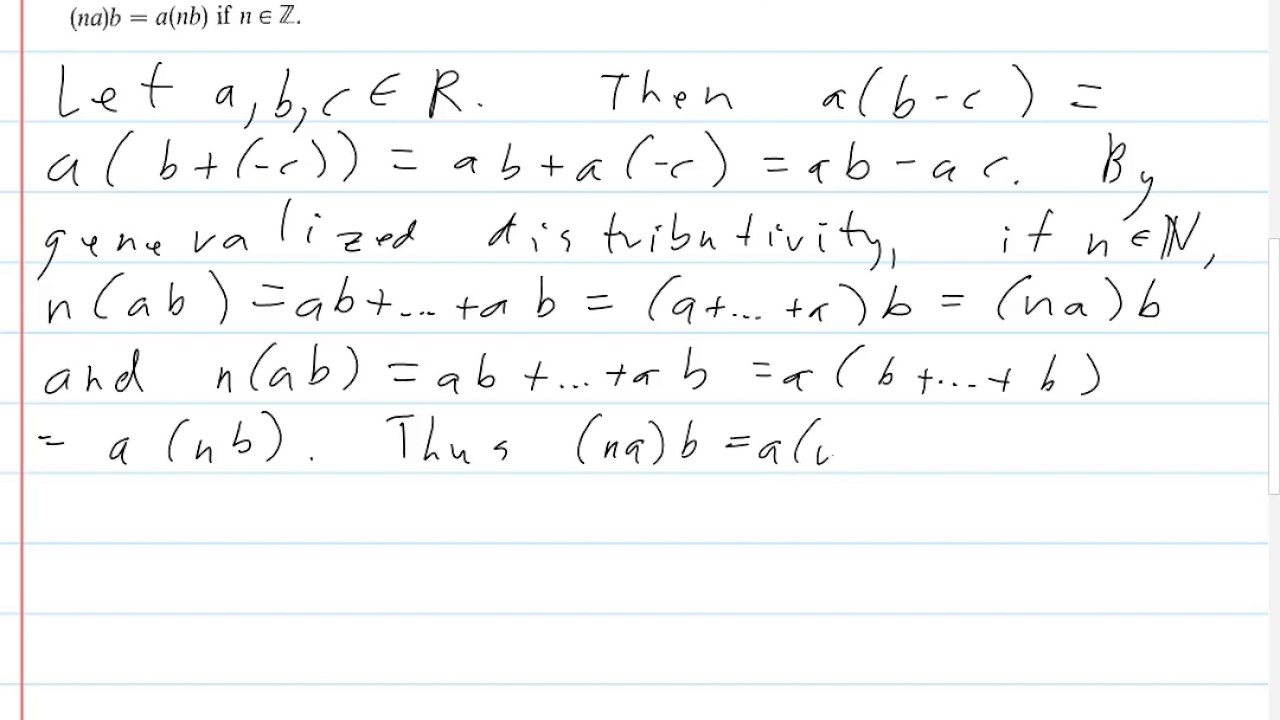 (na)b = a(nb) if n ∈ ℤ.
Let a, b, c ∈ R. Then a(b-c) =
a(b+(-c)) = ab+a(-c) = ab-ac. By
generalized distributivity, if n ∈ ℕ,
n(ab) = ab+...+ab = (a+...+a)b = (na)b
and n(ab) = ab+...+ab = a(b+...+b)
= a(nb). Thus (na)b = a(